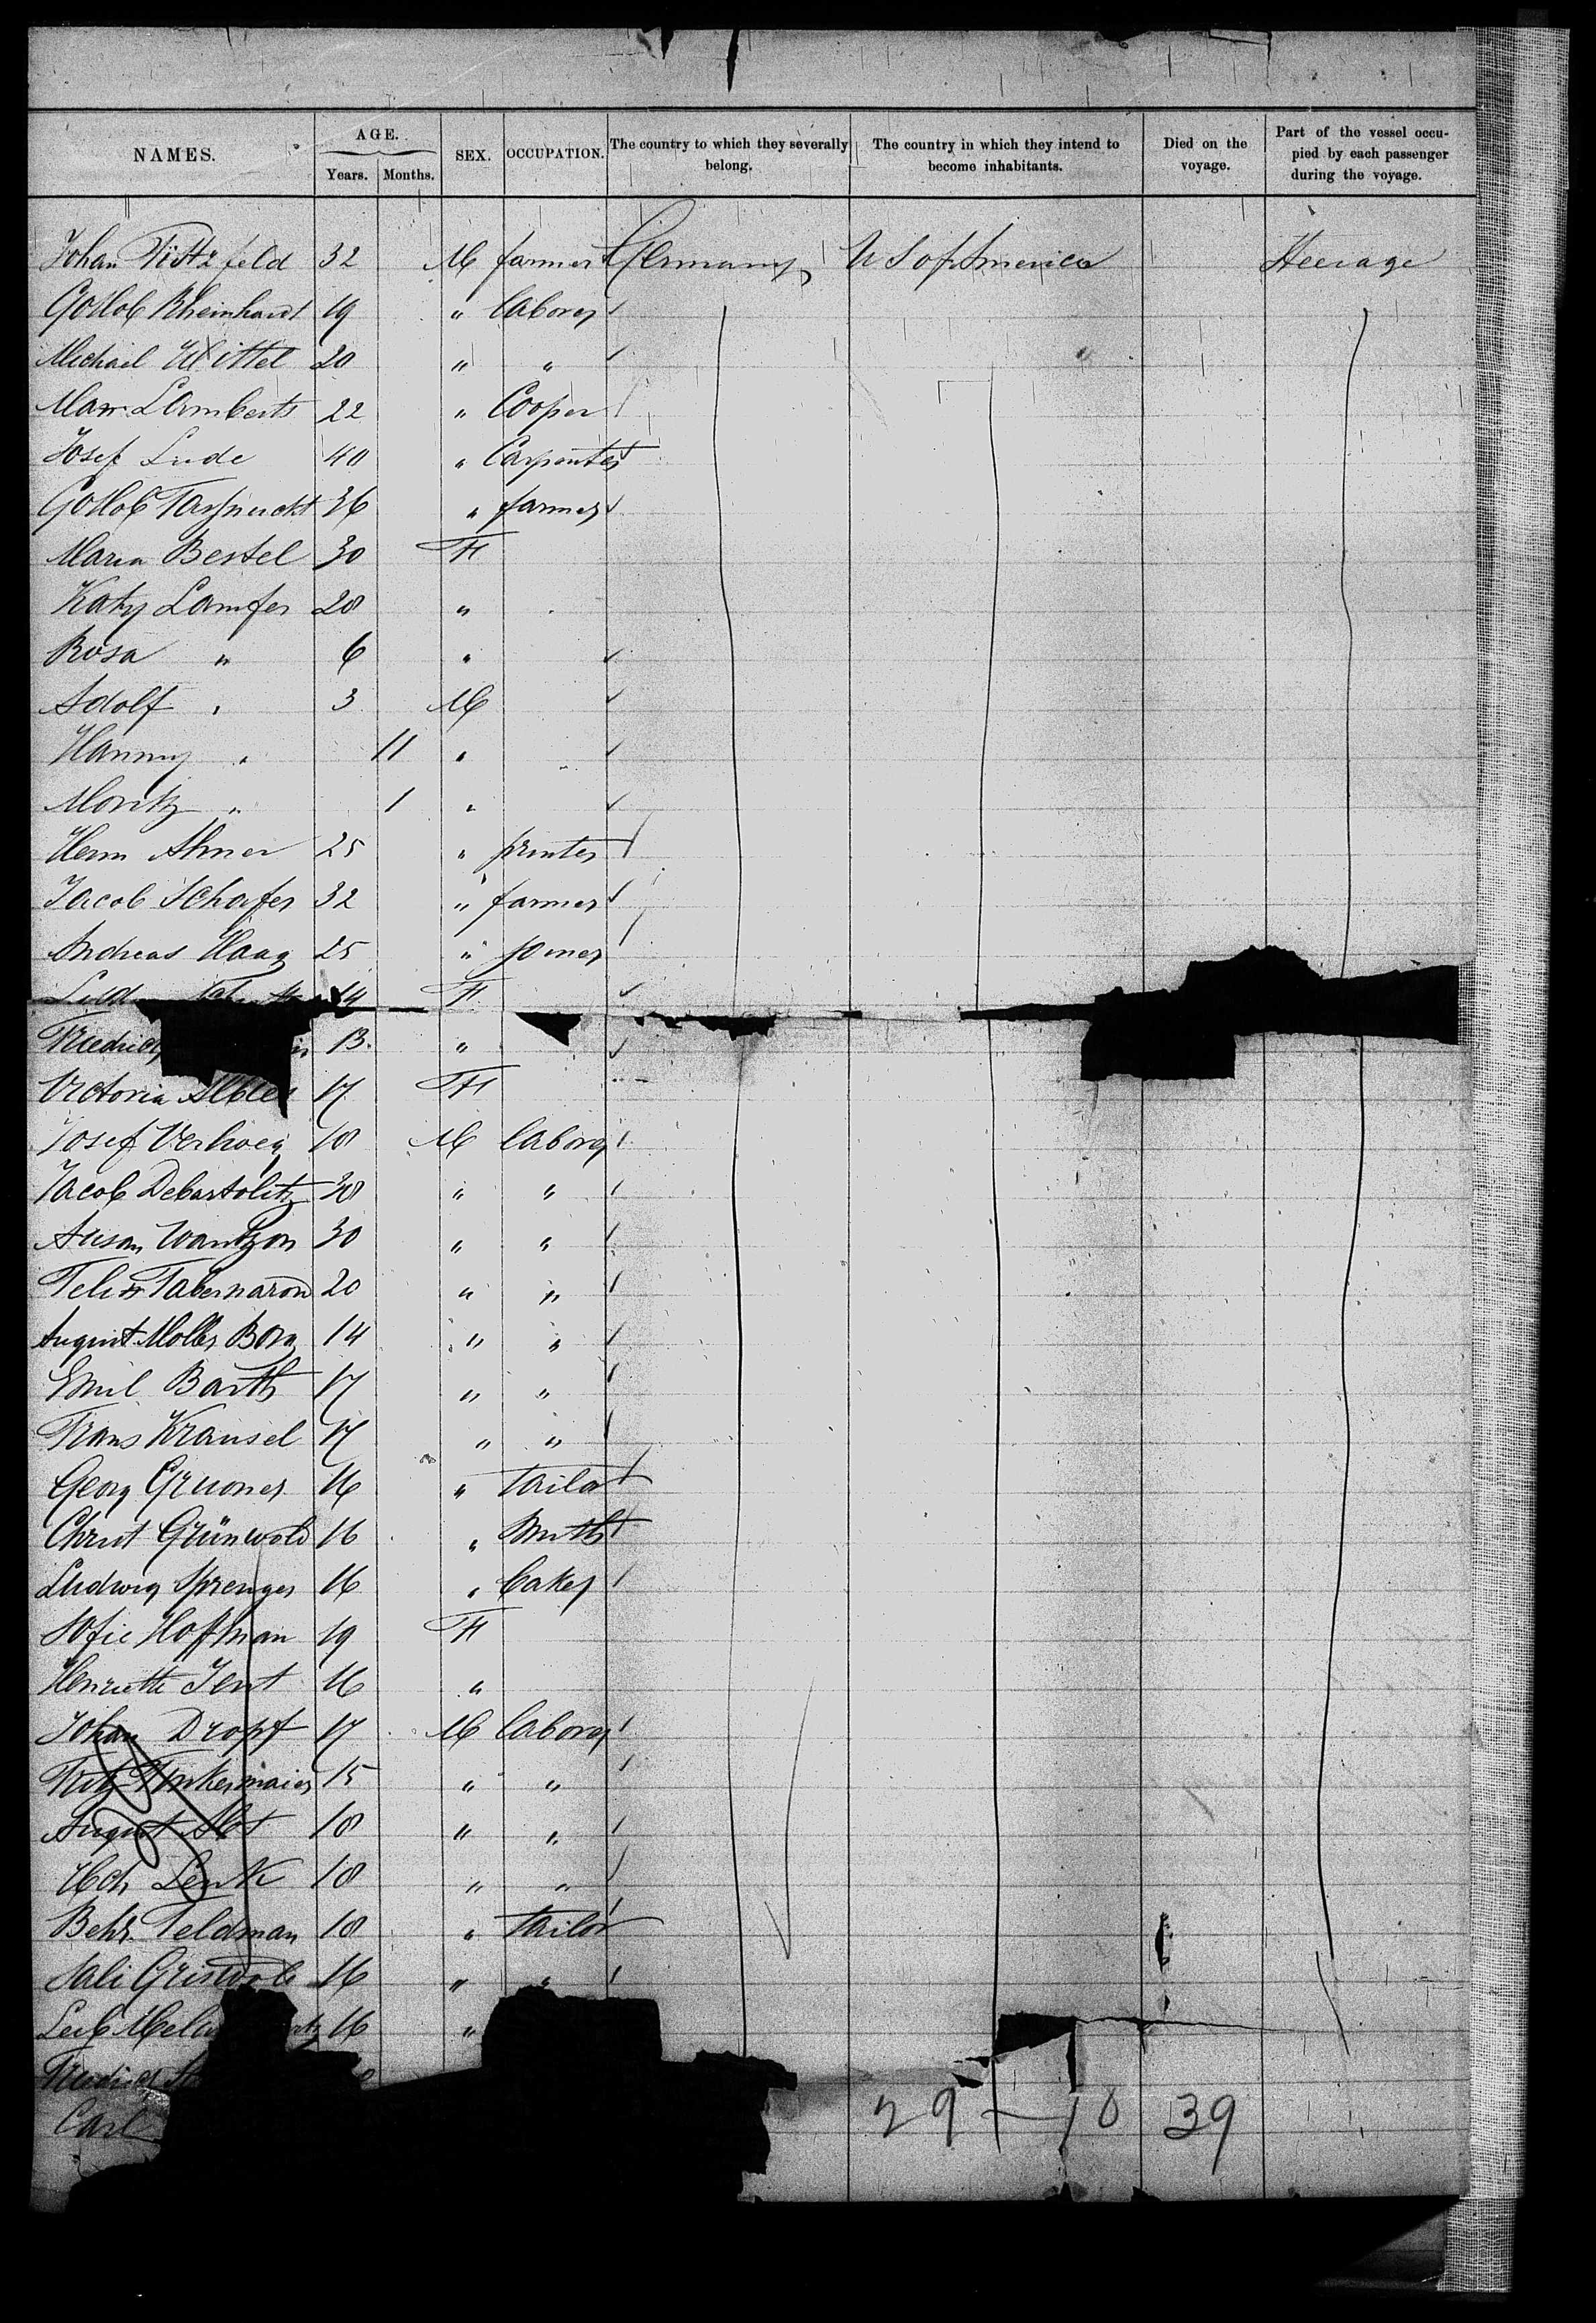 NAMES. AGE. Years. Months. SEX. OCCUPATION. The country to which they severally belong. The country in which they intend to become inhabitants. Died on the voyage. Part of the vessel occupied by each passenger during the voyage.
Johan 32 M farmer Germany U S of America Steerage
Gottlob Rheinhardt 19 " laborer
Michael Wittel 20 " "
Lamberts 22 " Cooper
Josef Lude 40 " Carpenter
Gottlob 36 " farmer
Maria Bestel 30 F
Katy Lamfer 28 "
Rosa " 6 "
Adolf " 3 M
Hanny " 11 "
Moritz " 1 "
Herm 25 " printer
Jacob Schafer 32 " farmer
Andreas Haag 25 " joiner
14 F
13 "
Victoria 17 F
Josef 18 M laborer
Jacob Debastolitz 38 " "
30 " "
Felix Tabernarow 20 " "
August 14 " "
Emil Barth 17 " "
Frans Krausel 17 " "
Georg Gruoner 16 " tailor
Christ Grünwold 16 " Smith
Ludwig Sprenger 16 " baker
Sofie Hoffman 19 F
Henriette Jent 16 "
Johan Dropf 17 M laborer
Fritz 15 " "
August 18 " "
Hch Lenk 18 " "
Behr. Feldman 18 " tailor
Sali 16 " "
16 "
Carl
29 - 10 39